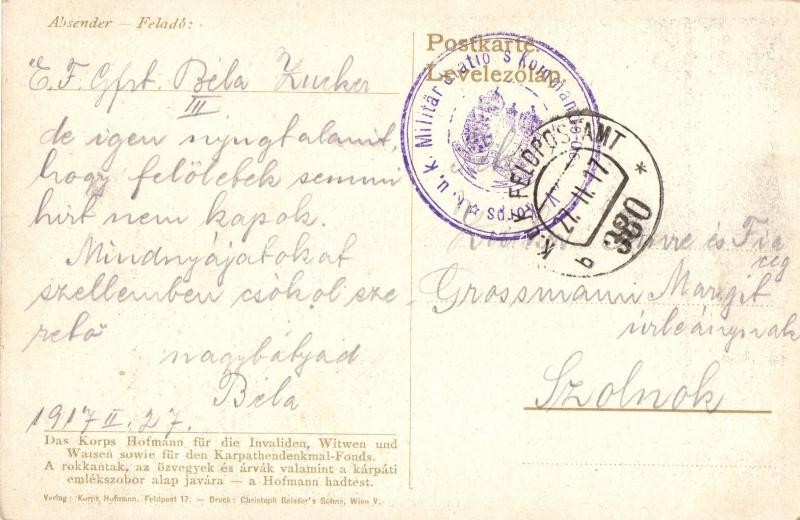 Absender — Feladó:
E. F. Gfrt. Béla Zucker
III
de igen nyugtalanit,
hogy felöletek semmi
hirt nem kapok.
Mindnyájatokat
szellemben csókol sze-
retö
nagybátyád
Béla
1917 II. 27.
Das Korps Hofmann für die Invaliden, Witwen und
Waisen sowie für den Karpathendenkmal-Fonds.
A rokkantak, az özvegyek és árvák valamint a kárpáti
emlékszobor alap javára — a Hofmann hadtest.
Verlag: Korps Hofmann. Feldpost 17. — Druck: Christoph Reisser's Söhne, Wien V.
Postkarte.
Levelezőlap.
K. u. K. Militär Korps
K. u. K. FELDPOSTAMT
27. II. 17
b
380
és Fia
cég
Grossmann Margit
úrleánynak
Szolnok